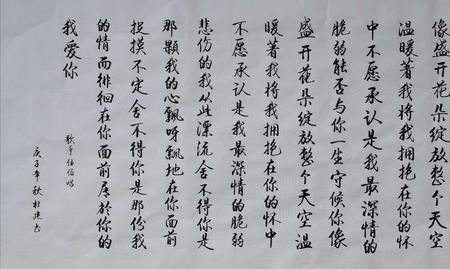 像盛开花朵绽放整个天空
温暖著我将我拥抱在你的怀
中不愿承认是我最深情的
脆弱能否与你一生守候你像
盛开花朵绽放整个天空温
暖著我将我拥抱在你的怀中
不愿承认是我最深情的脆弱
悲伤的我从此漂流舍不得你是
那颗我的心飘呀飘地在你面前
捉摸不定舍不得你是那份我
的情而徘徊在你面前属於你的
我爱你
歌手伍佰唱
庚子年秋杜建书